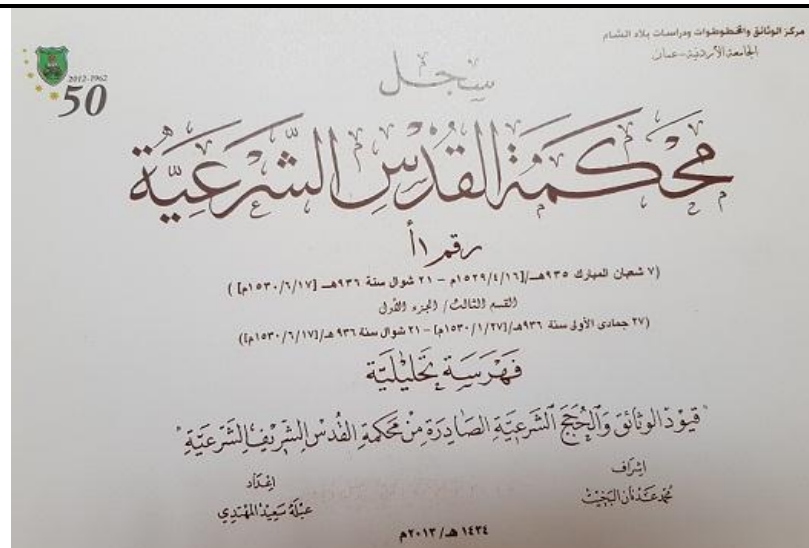 مركز الوثائق والمخطوطات ودراسات بلاد الشام
الجامعة الأردنية-عمان
2012-1962
50
سجل
محكمة القدس الشرعية
رقم ١أ
(٧ شعبان المبارك ٩٣٥هـ/[١٥٢٩/٤/١٦م – ٢١ شوال سنة ٩٣٦هـ [١٥٣٠/٦/١٧م])
القسم الثالث/ الجزء الأول
(٢٧ جمادى الأولى سنة ٩٣٦هـ/[١٥٣٠/١/٢٧م] – ٢١ شوال سنة ٩٣٦هـ/[١٥٣٠/٦/١٧م])
فهرسة تحليلية
"قيود الوثائق والحجج الشرعية الصادرة من محكمة القدس الشريف الشرعية"
إشراف
محمد عدنان البخيت
إعداد
عبلة سعيد المهتدي
١٤٣٤ هـ/ ٢٠١٣م